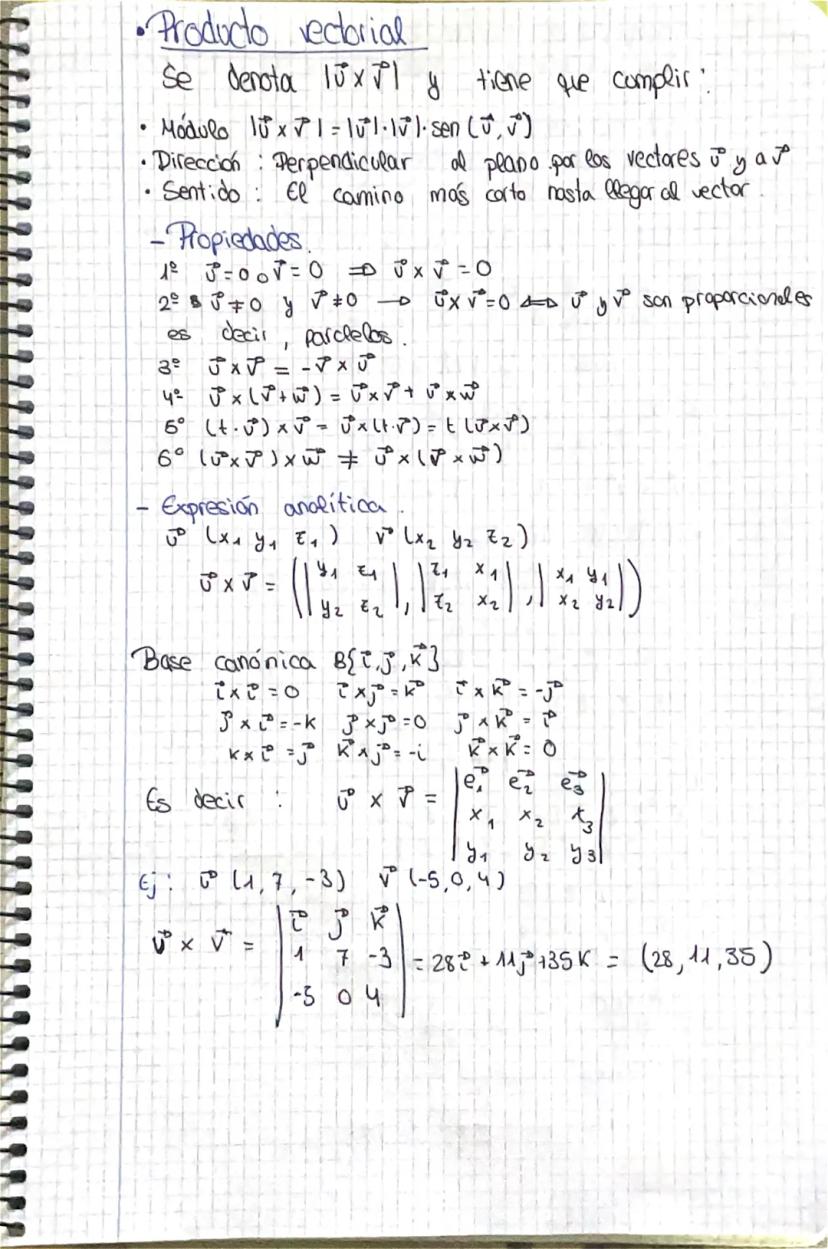 • Producto vectorial
Se denota |u⃗ x v⃗| y tiene que cumplir:
• Módulo |u⃗ x v⃗| = |u⃗|·|v⃗|· sen (u⃗, v⃗)
• Dirección : Perpendicular al plano por los vectores u⃗ y a v⃗
• Sentido : El camino más corto hasta llegar al vector.
- Propiedades.
1º u⃗=0 o v⃗=0 ⇒ u⃗ x v⃗ = 0
2º u⃗≠0 y v⃗≠0 → u⃗ x v⃗=0 ⇔ u⃗ y v⃗ son proporcionales
es decir, paralelos.
3º u⃗ x v⃗ = -v⃗ x u⃗
4º u⃗ x (v⃗+w⃗) = u⃗ x v⃗ + u⃗ x w⃗
5º (t·u⃗) x v⃗ = u⃗ x (t·v⃗) = t (u⃗ x v⃗)
6º (u⃗ x v⃗) x w⃗ ≠ u⃗ x (v⃗ x w⃗)
- Expresión analítica.
u⃗ (x₁ y₁ z₁) v⃗ (x₂ y₂ z₂)
u⃗ x v⃗ = (|y₁ z₁|, |z₁ x₁|, |x₁ y₁|)
|y₂ z₂| |z₂ x₂| |x₂ y₂|
Base canónica B{i⃗, j⃗, k⃗}
i⃗ x i⃗ = 0 i⃗ x j⃗ = k⃗ i⃗ x k⃗ = -j⃗
j⃗ x i⃗ = -k j⃗ x j⃗ = 0 j⃗ x k⃗ = i⃗
k x i⃗ = j⃗ k⃗ x j⃗ = -i k⃗ x k⃗ = 0
|e₁⃗ e₂⃗ e₃⃗|
Es decir : u⃗ x v⃗ = |x₁ x₂ x₃|
|y₁ y₂ y₃|
Ej: u⃗ (1, 7, -3) v⃗ (-5, 0, 4)
|i⃗ j⃗ k⃗|
u⃗ x v⃗ = |1 7 -3| = 28i⃗ + 11j⃗ + 35k = (28, 11, 35)
|-5 0 4|